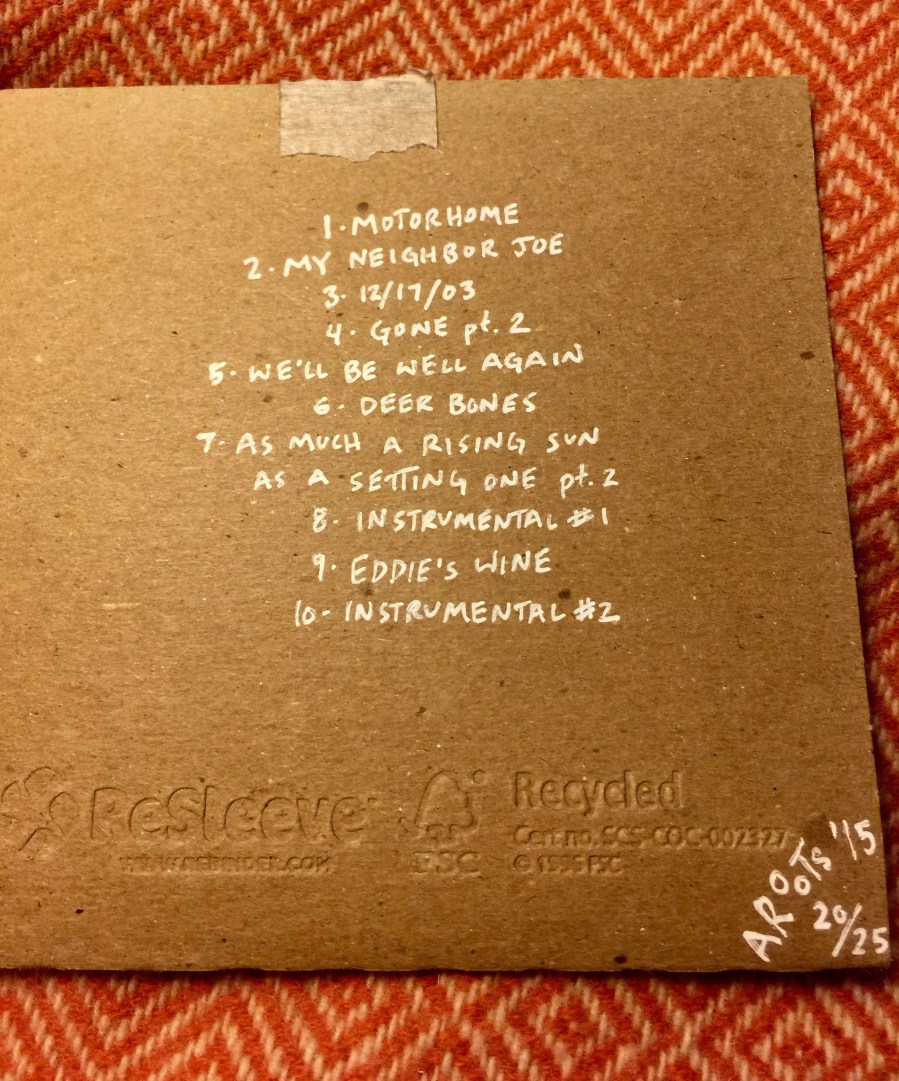 1. MOTORHOME
2. MY NEIGHBOR JOE
3. 12/17/03
4. GONE pt. 2
5. WE'LL BE WELL AGAIN
6. DEER BONES
7. AS MUCH A RISING SUN
AS A SETTING ONE pt. 2
8. INSTRUMENTAL #1
9. EDDIE'S WINE
10. INSTRUMENTAL #2
ReSleeve
WWW.REBINDER.COM
FSC
Recycled
Cert no. SCS-COC-002327
© 1996 FSC
AROOTS '15
20/25